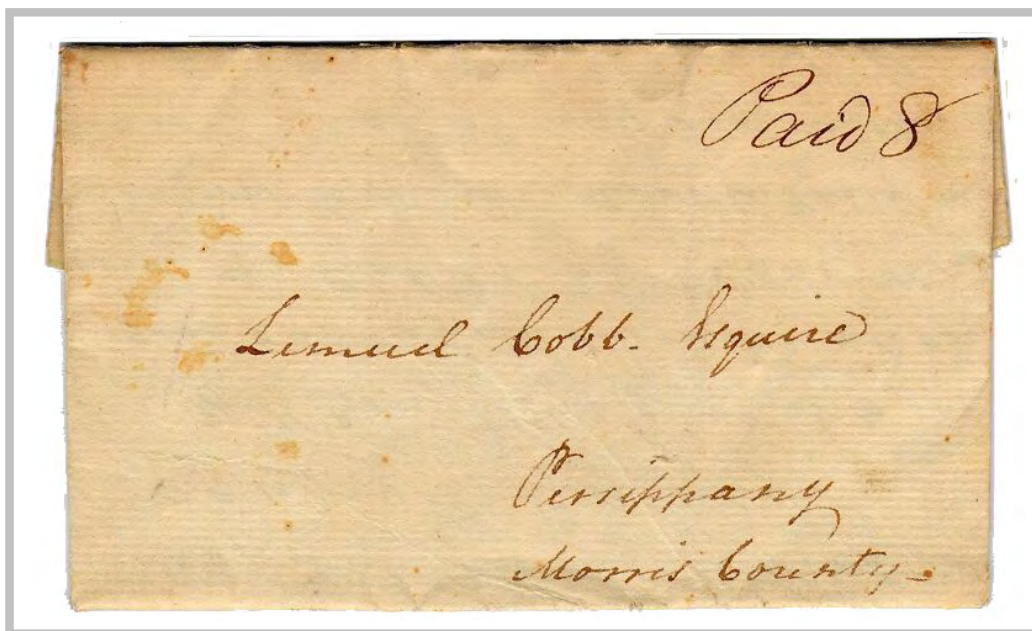 Paid 8
Lemuel Cobb. Esquire
Persippany
Morris County